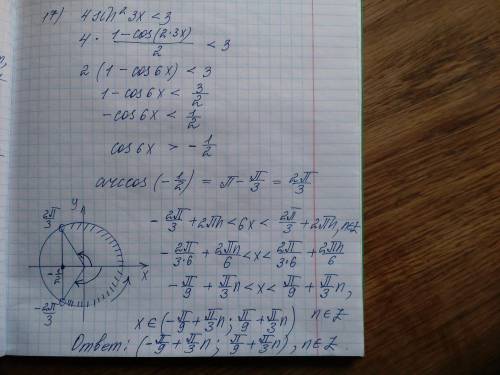 17) 4 sin² 3x < 3
4 · (1 - cos(2·3x))/2 < 3
2 (1 - cos6x) < 3
1 - cos6x < 3/2
- cos6x < 1/2
cos6x > - 1/2
arccos(- 1/2) = π - π/3 = 2π/3
- 2π/3 + 2πn < 6x < 2π/3 + 2πn, n∈Z
- 2π/(3·6) + 2πn/6 < x < 2π/(3·6) + 2πn/6
- π/9 + π/3 n < x < π/9 + π/3 n,
n∈Z
x ∈ (- π/9 + π/3 n; π/9 + π/3 n)
Ответ: (- π/9 + π/3 n; π/9 + π/3 n), n∈Z.
y
2π/3
- 1/2
x
- 2π/3